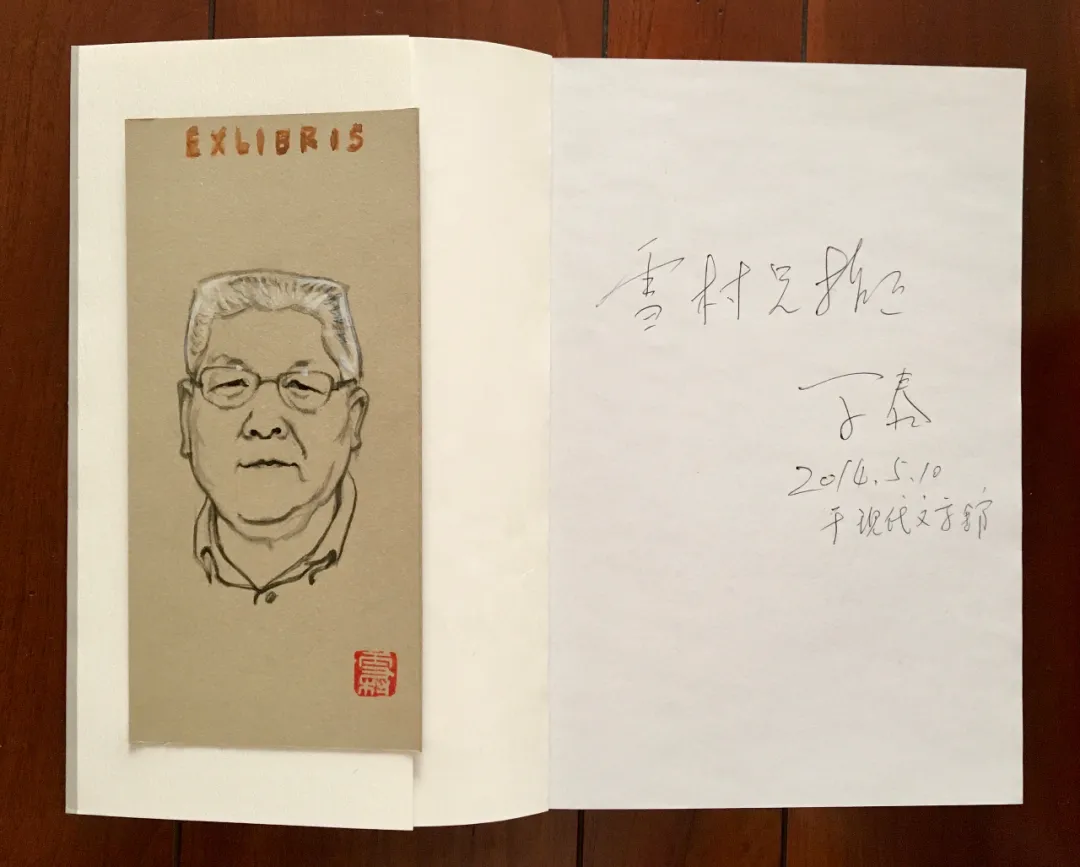 EXLIBRIS
雪村
雪村兄指正
2014.5.10
于现代文学馆